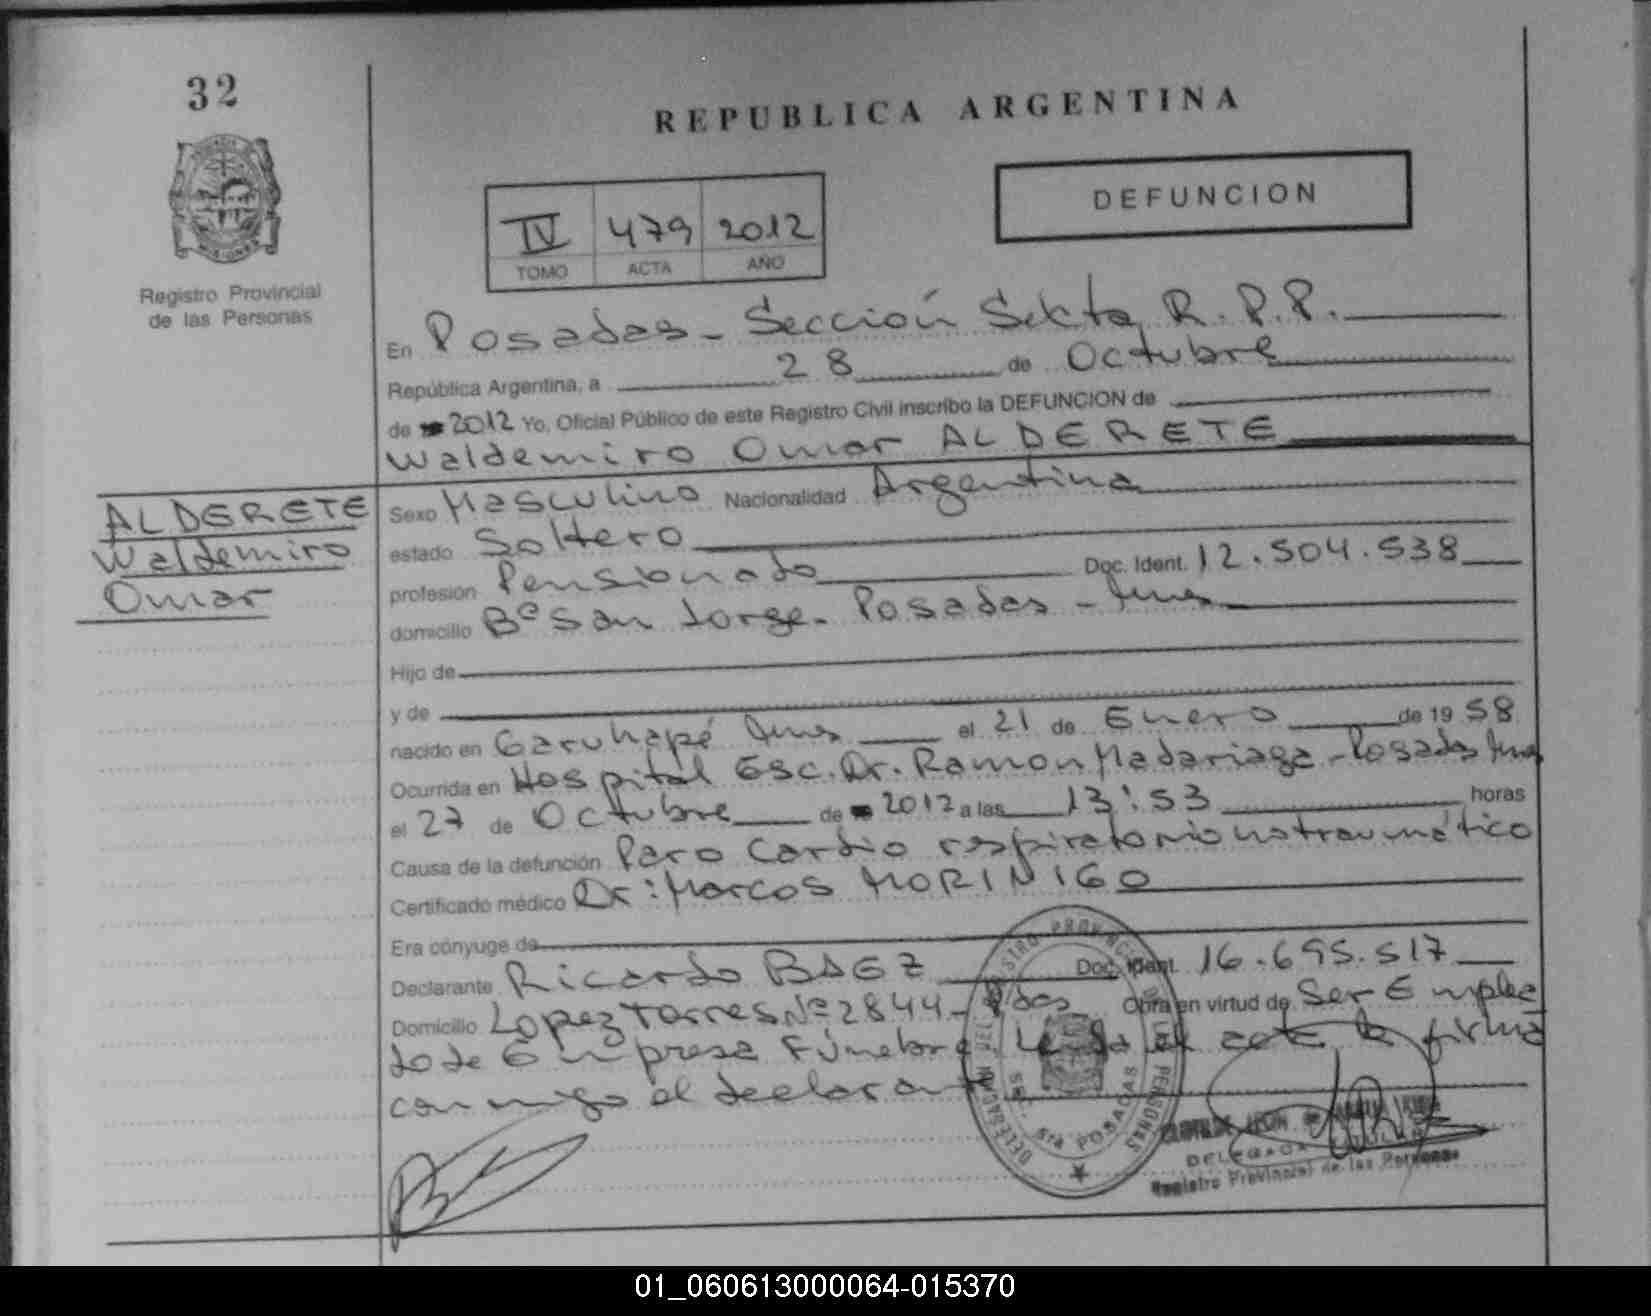 32
REPUBLICA ARGENTINA
DEFUNCION
IV 479 2012
TOMO ACTA AÑO
Registro Provincial
de las Personas
En Posadas - Sección Sexta R.P.P.
República Argentina, a 28 de Octubre
de 2012 Yo, Oficial Público de este Registro Civil inscribo la DEFUNCION de
Waldemiro Omar ALDERETE
ALDERETE
Waldemiro
Omar
Sexo Masculino Nacionalidad Argentina
estado Soltero
profesión Pensionado Doc. Ident. 12.504.538
domicilio Bº San Jorge. Posadas -
Hijo de
y de
nacido en Garuhapé el 21 de Enero de 1958
Ocurrida en Hospital Esc. Dr. Ramon Madariaga - Posadas
el 27 de Octubre de 2012 a las 13:53 horas
Causa de la defunción Paro Cardio respiratorio no traumático
Certificado médico Dr: Marcos MORINIGO
Era cónyuge de
Declarante Ricardo BAEZ Doc. Ident. 16.695.517
Domicilio Lopez Torres Nº 2844 - Pdas Obra en virtud de Ser Emplea
do de Empresa Fúnebre Leída el acta la firma
conmigo el declarante
DELEGACION
STA POSADAS
DELEGADA
Registro Provincial de las Personas
01_060613000064-015370